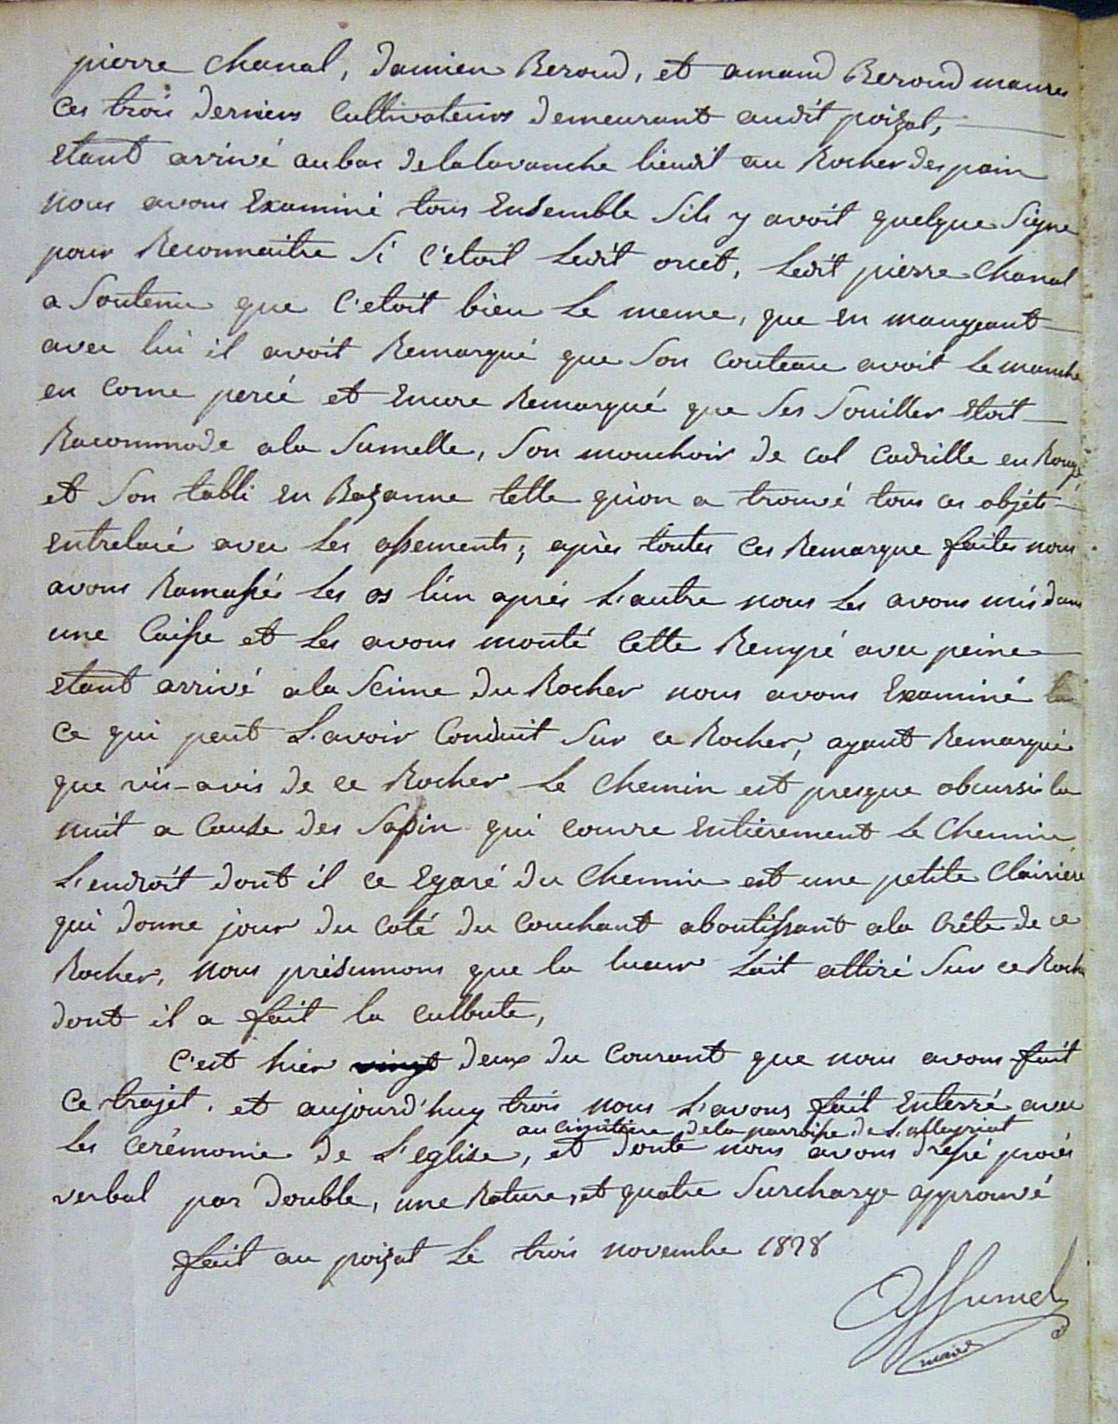 pierre chanal, damien Beroud, et amand Beroud maures
Ces trois derniers Cultivateurs demeurant audit poizat,
etant arrivé au bas de la lavanche lieudit au Rocher des pain
nous avons Examiné tous Ensemble Sils y avoit quelque Signe
pour Reconnaitre Si C'etoit Ledit orcet, Ledit pierre Chanal
a Soutenu que C'etoit bien Le meme, que en mangeant
avec lui il avoit Remarqué que Son Couteau avoit Le manche
en corne percé et Encore Remarqué que Ses Souiller Etoit
Racommode a la Sumelle, Son mouchoir de Col Cadrille en Rouge,
et Son tabli en Bazanne telle qu'on a trouvé tous ces objéts
Entrelacé avec Les ossements; après toutes Ces Remarque faites nous
avons Ramassés Les os l'un aprés L'autre nous Les avons mis dans
une Caisse et Les avons monté Cette Rempé avec peine
etant arrivé a la Scime du Rocher nous avons Examiné
Ce qui peut L'avoir Conduit Sur ce Rocher, ayant Remarqué
que vis-avis de ce Rocher Le Chemin est presque obcursi la
nuit a Cause des Sapin qui couvre Entièrement Le Chemin,
L'endroit dont il ce Egaré du Chemin est une petite Clairiere
qui donne jour du coté du Couchant aboutissant a la Crête de ce
Rocher, nous présumons que la lueur Lait attiré Sur ce Rocher
dont il a fait la culbute,
C'est hier vingt deux du Courant que nous avons fait
Ce trajet. et aujourd'huy trois nous L'avons fait Enterré avec
au cimitiere de la parroisse de L'alleyriat
Les cerémonie de L'eglise, et donte nous avons dressé procés
verbal par double, une Rature, et quatre Surcharge approuvé
fait au poizat Le trois novembre 1828
maire